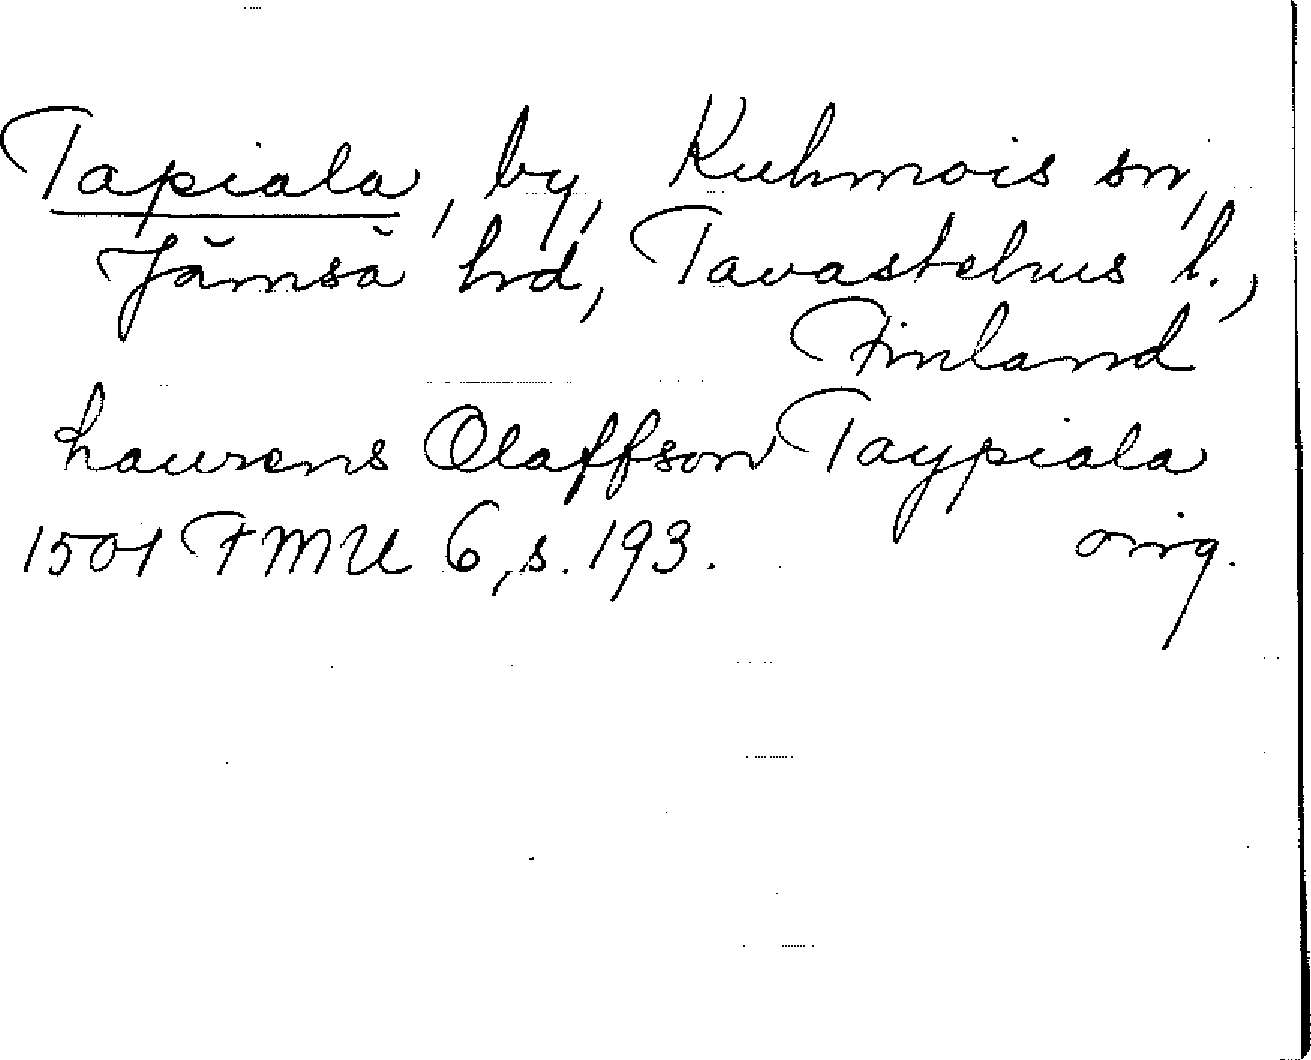 Tapiala, by, Kuhmois sn,
Jämsä hd, Tavastehus l.,
Finland
Laurens Olaffson Taypiala
1501 FMU 6, s. 193. orig.